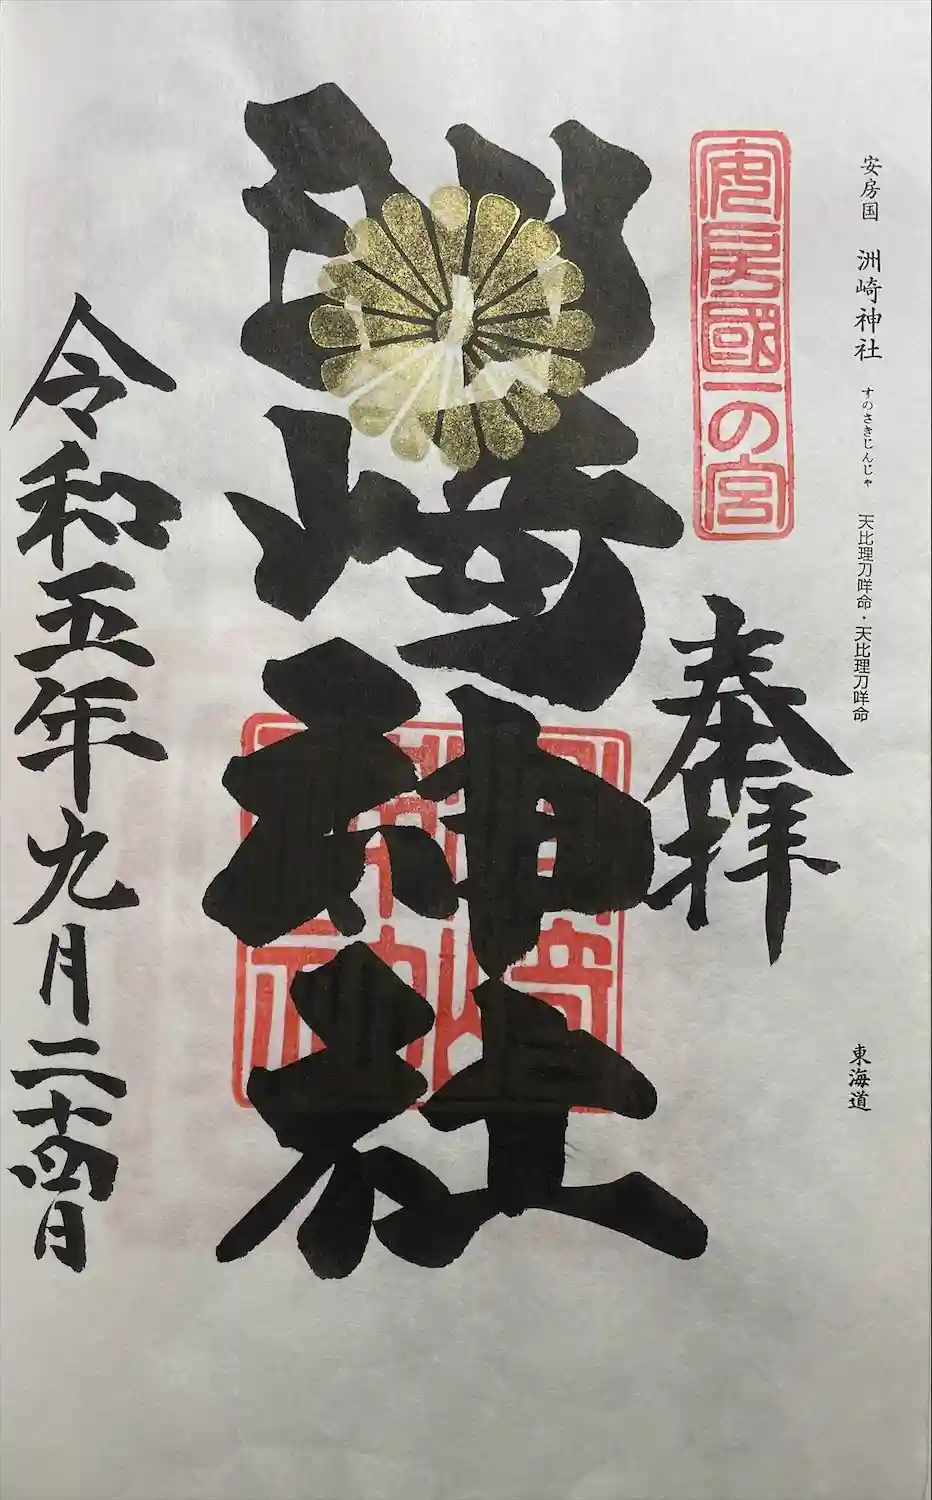 安房国 洲崎神社 すのさきじんじゃ 天比理刀咩命・天比理刀咩命 東海道
安房國一の宮
奉拝
洲崎神社
洲崎神社
令和五年九月二十四日